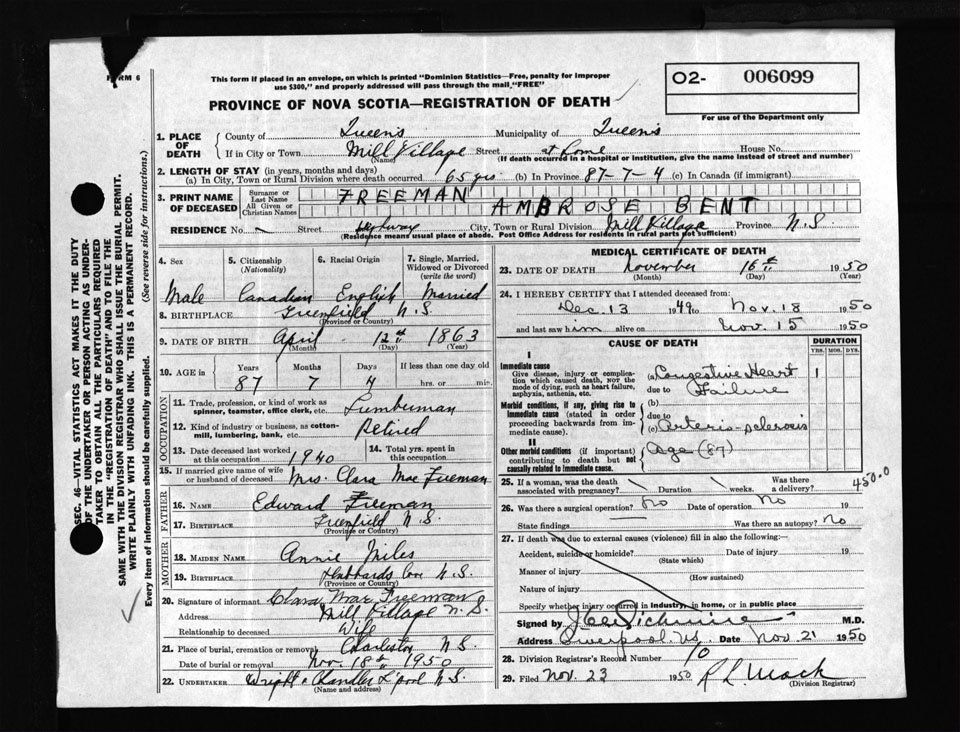 FORM 6
This form if placed in an envelope, on which is printed "Dominion Statistics—Free, penalty for improper
use $300," and properly addressed will pass through the mail, "FREE"
PROVINCE OF NOVA SCOTIA—REGISTRATION OF DEATH
O2- 006099
For use of the Department only
SEC. 46—VITAL STATISTICS ACT MAKES IT THE DUTY
OF THE UNDERTAKER OR PERSON ACTING AS UNDER-
TAKER TO OBTAIN ALL THE PARTICULARS REQUIRED
IN THE "REGISTRATION OF DEATH" AND TO FILE THE
SAME WITH THE DIVISION REGISTRAR WHO SHALL ISSUE THE BURIAL PERMIT.
WRITE PLAINLY WITH UNFADING INK. THIS IS A PERMANENT RECORD.
Every item of information should be carefully supplied. (See reverse side for instructions.)
1. PLACE OF DEATH County of Queens Municipality of Queens
If in City or Town Mill Village Street at home House No.
(Name) (If death occurred in a hospital or institution, give the name instead of street and number)
2. LENGTH OF STAY (in years, months and days)
(a) In City, Town or Rural Division where death occurred 65 yrs (b) In Province 87-7-4 (c) In Canada (if immigrant)
3. PRINT NAME OF DECEASED Surname or Last Name FREEMAN
All Given or Christian Names AMBROSE BENT
RESIDENCE No. — Street Highway City, Town or Rural Division Mill Village Province N.S
(Residence means usual place of abode. Post Office Address for residents in rural parts not sufficient)
4. Sex 5. Citizenship (Nationality) 6. Racial Origin 7. Single, Married, Widowed or Divorced (write the word)
Male Canadian English Married
8. BIRTHPLACE Greenfield N.S.
(Province or Country)
9. DATE OF BIRTH April 12th 1863
(Month) (Day) (Year)
10. AGE in Years Months Days If less than one day old
87 7 4 hrs. or min.
OCCUPATION
11. Trade, profession, or kind of work as spinner, teamster, office clerk, etc. Lumberman
12. Kind of industry or business, as cotton-mill, lumbering, bank, etc. Retired
13. Date deceased last worked at this occupation 1940 14. Total yrs. spent in this occupation
15. If married give name of wife or husband of deceased Mrs. Clara Mae Freeman
FATHER
16. NAME Edward Freeman
17. BIRTHPLACE Greenfield N.S.
(Province or Country)
MOTHER
18. MAIDEN NAME Annie Miles
19. BIRTHPLACE Hubbards Cove N.S.
(Province or Country)
20. Signature of informant Clara Mae Freeman
Address Mill Village N.S.
Relationship to deceased Wife
21. Place of burial, cremation or removal Charleston N.S.
Date of burial or removal Nov. 18th 1950
22. UNDERTAKER Wright & Chandler L'pool N.S.
(Name and address)
MEDICAL CERTIFICATE OF DEATH
23. DATE OF DEATH November 16th 1950
(Month) (Day) (Year)
24. I HEREBY CERTIFY that I attended deceased from
Dec. 13 1949 to Nov. 18 1950
and last saw him alive on Nov. 15 1950
CAUSE OF DEATH DURATION
YRS. MOS. DYS.
I
Immediate cause
Give disease, injury or complication which caused death, NOT the mode of dying, such as heart failure, asphyxia, asthenia, etc.
(a) Congestive Heart 1
due to Failure
Morbid conditions, if any, giving rise to immediate cause (stated in order proceeding backwards from immediate cause).
(b)
due to
(c) Arterio-sclerosis
II
Other morbid conditions (if important) contributing to death but not causally related to immediate cause.
Age (87)
450.0
25. If a woman, was the death associated with pregnancy? Duration weeks. Was there a delivery?
26. Was there a surgical operation? No Date of operation No 19
State findings Was there an autopsy? No
27. If death was due to external causes (violence) fill in also the following:
Accident, suicide or homicide? Date of injury 19
(State which)
Manner of injury
(How sustained)
Nature of injury
Specify whether injury occurred in industry, in home, or in public place
Signed by M.D.
Address Liverpool N.S. Date Nov. 21 1950
28. Division Registrar's Record Number 10
29. Filed Nov. 23 1950 R L Mack
(Division Registrar)